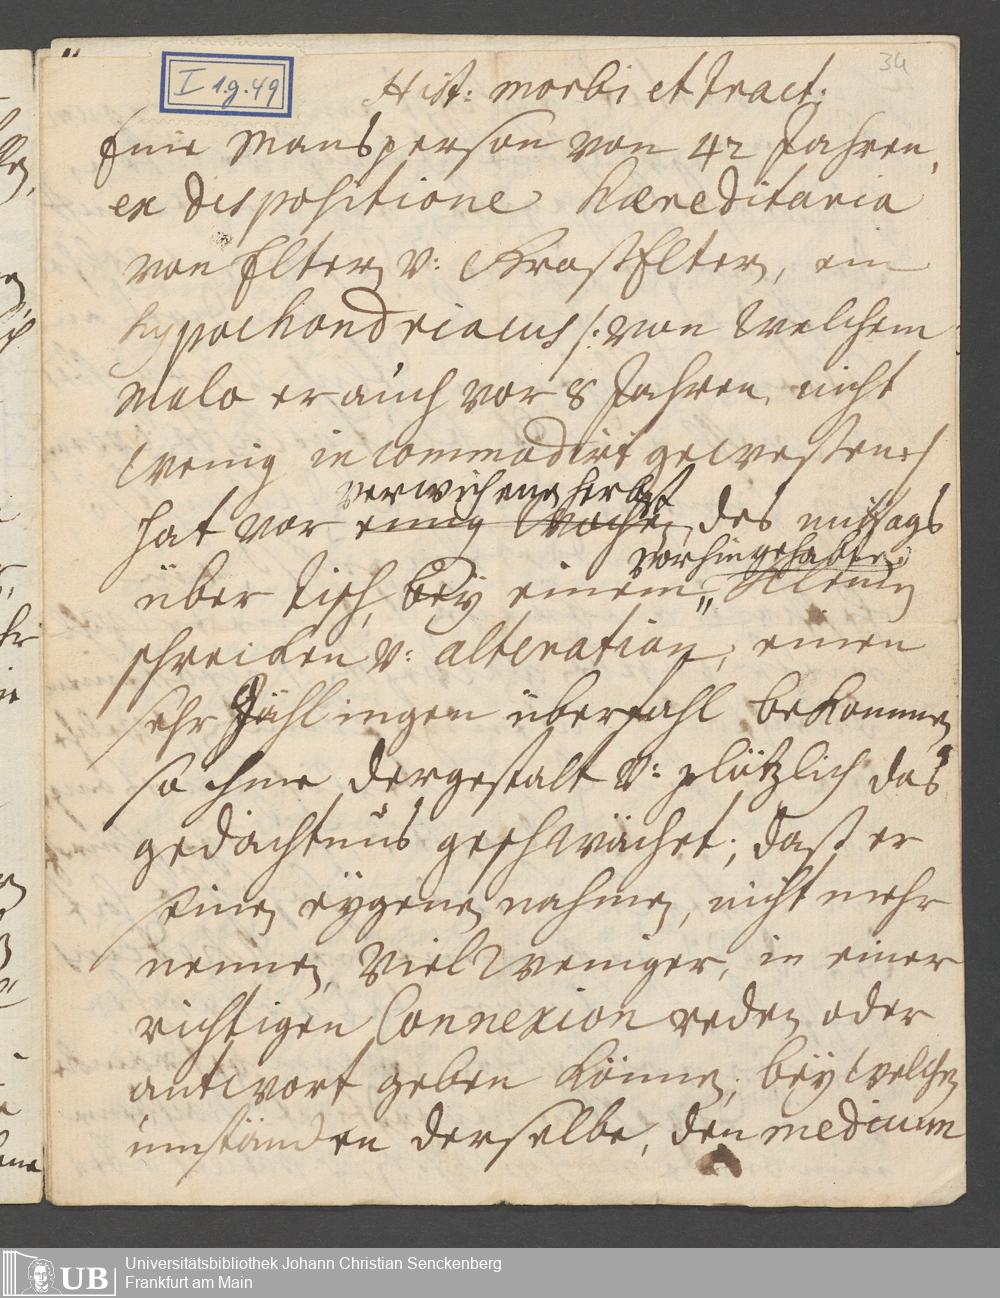 34
I 1.g.49
Hist: morbi et tract:
Eine Mansperson von 42 Jahren,
ex dispositione hæreditaria
von Eltern v: GrossEltern, ein
hypochondriacus /: von welchem
Malo er auch vor 8 Jahren, nicht
wenig incommodirt gewessen :/
verwichenen herbst
hat vor einig wochen, des mittags
vorhingehabten
über tisch, bey einem kleinen
schrecken v: alteration, einen
sehr Jählingen überfahl bekommen
so ihme dergestalt v: plötzlich das
gedächtnus geschwächet; dass er
seinen eygenen nahmen, nicht mehr
nennen, Vielweniger, in einer
richtigen Connexion reden oder
antwort geben können; bey welchen
umständen derselbe, den medicum
UB
Universitätsbibliothek Johann Christian Senckenberg
Frankfurt am Main